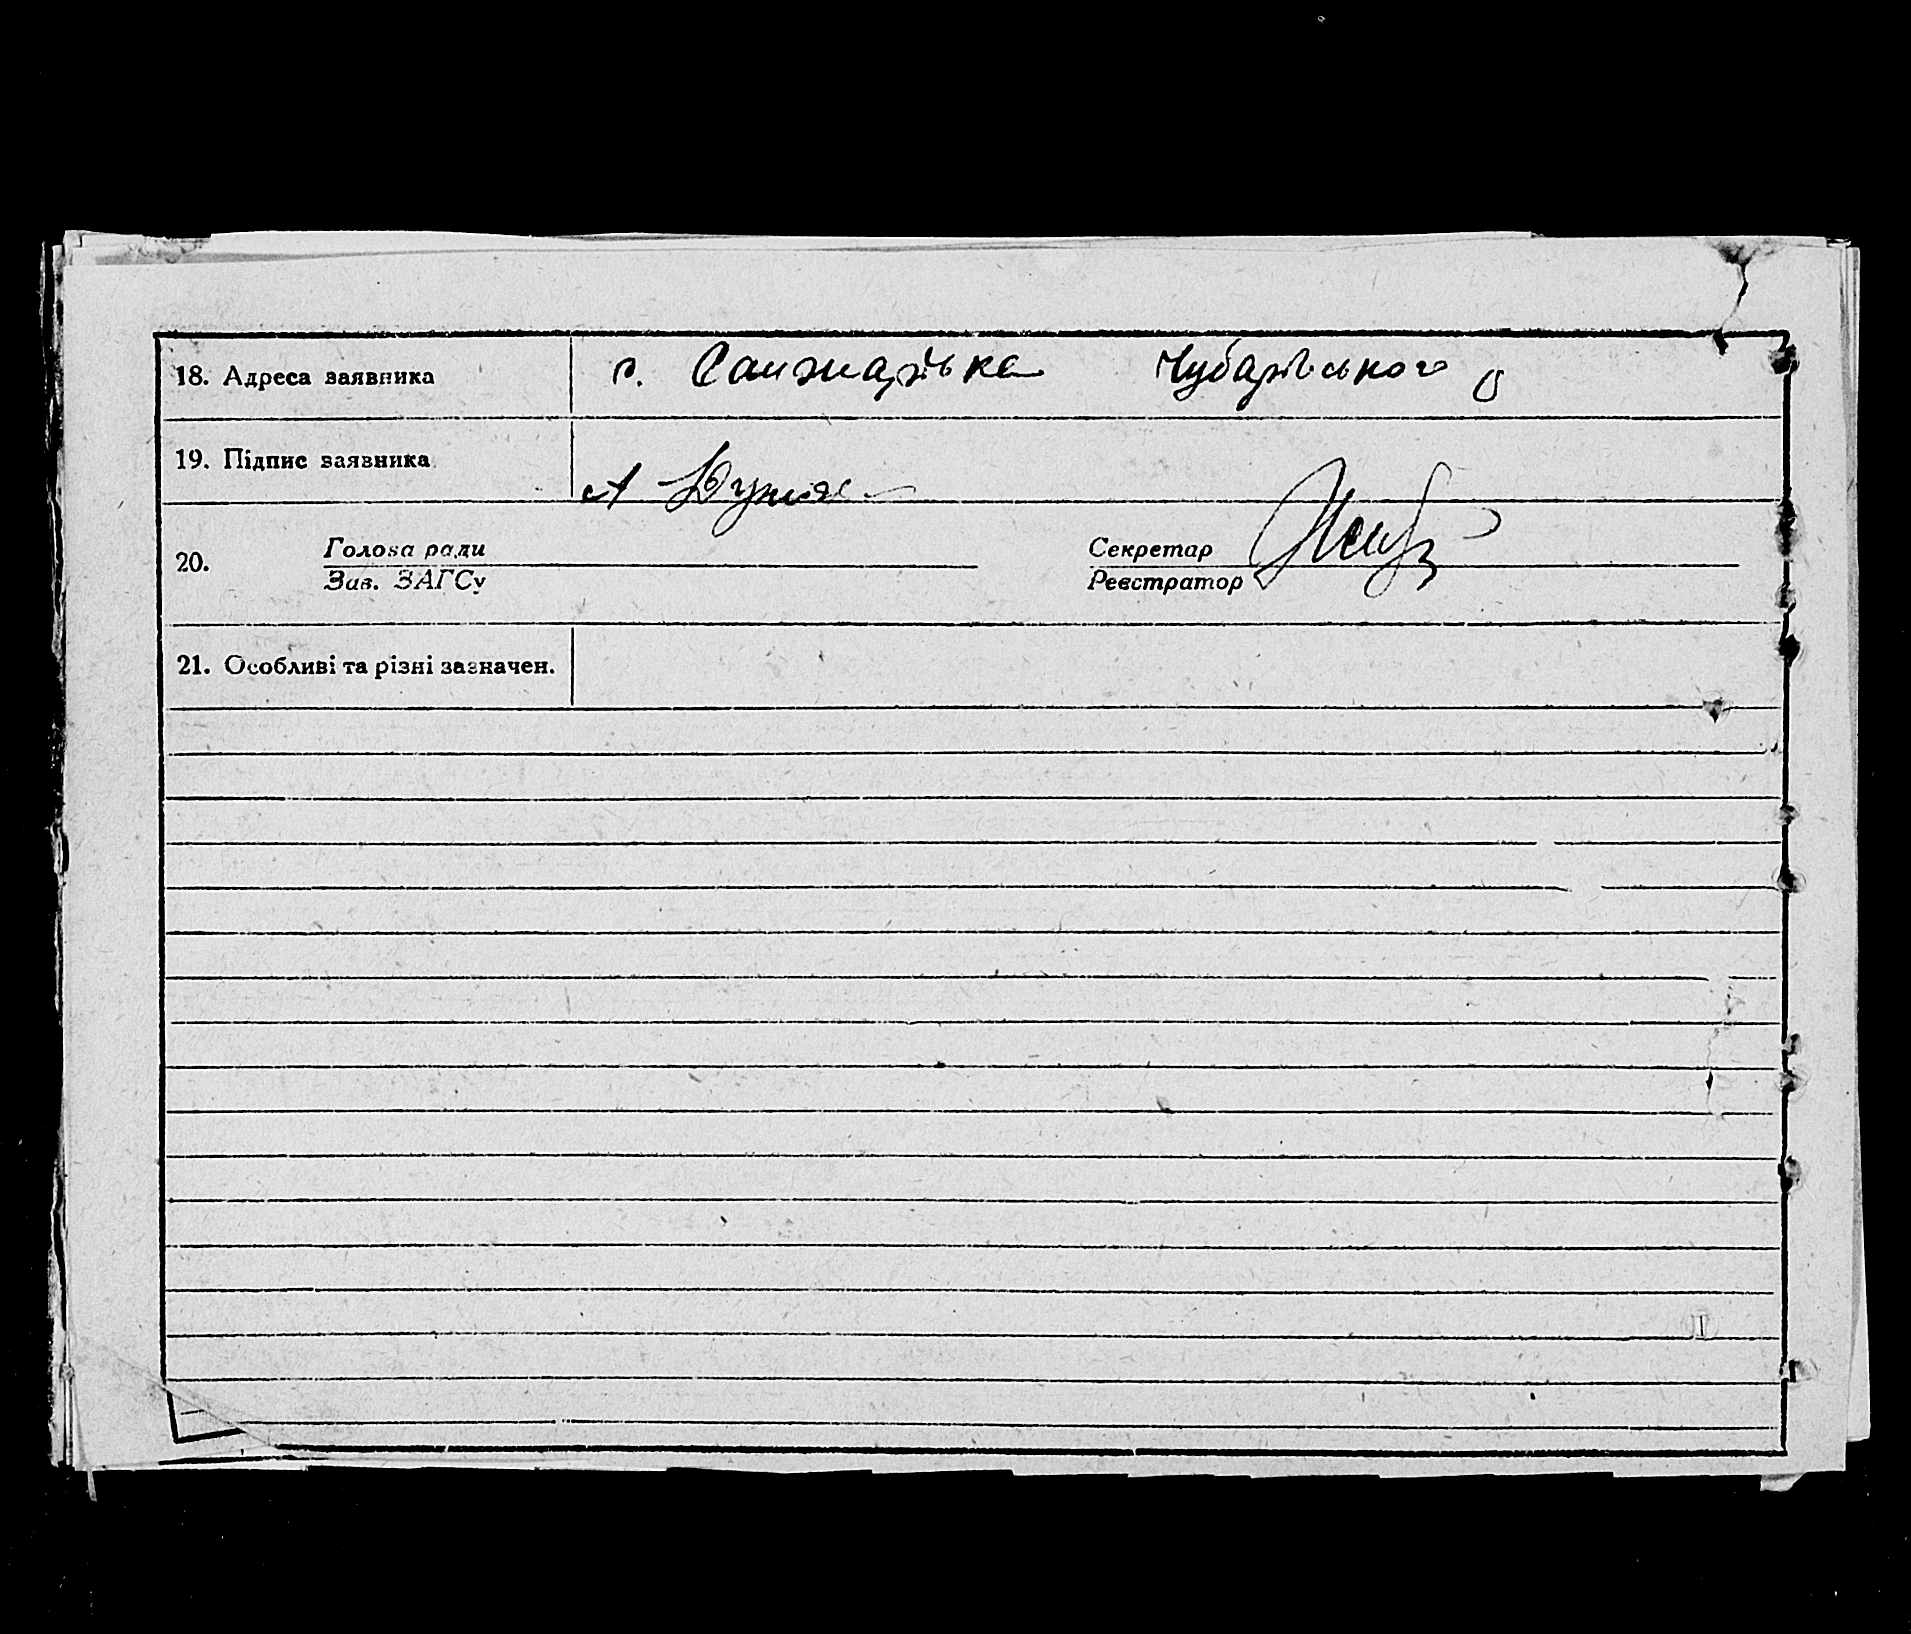 18. Адреса заявника с. Санжарівка Чубарівського р
19. Підпис заявника
20. Голова ради Секретар
Зав. ЗАГСу Реєстратор
21. Особливі та різні зазначен.